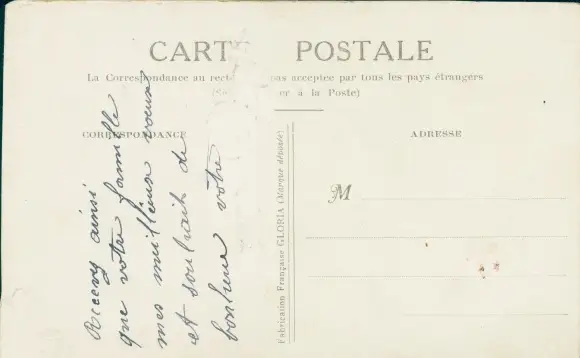 CARTE POSTALE
La Correspondance au recto pas acceptee par tous les pays étrangers
er à la Poste)
CORRESPONDANCE
ADRESSE
Recevez ainsi
que votre famille
mes meilleurs vœux
et souhaits de
bonheur votre
Fabrication Française GLORIA (Marque déposée)
M